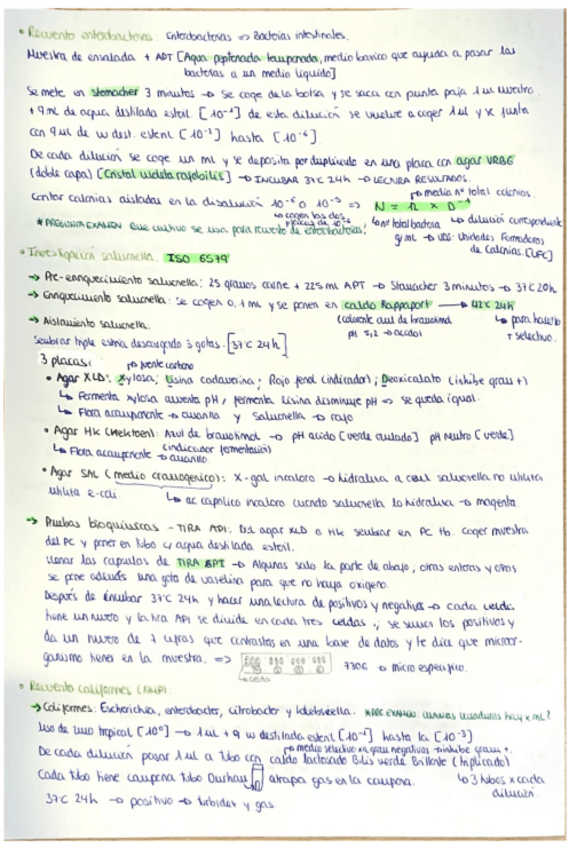 • Recuento enterobacterias: Enterobacterias => Bacterias intestinales.
Muestra de ensalada + ADT [Agua peptonada tamponada, medio basico que ayuda a pasar las
bacterias a un medio liquido]
Se mete en stomacher 3 minutos → se coge de la bolsa y se saca con punta paja 1 ml muestra
+ 9 ml de agua destilada esteril. [10⁻¹] de esta dilución se vuelve a coger 1 ml y se junta
con 9 ml de w dest. esteril [10⁻²] hasta [10⁻⁶].
De cada dilución se coge un ml y se deposita por duplicado en una placa con agar VRBG
(doble capa) [Cristal violeta rojo bilis] → INCUBAR 37ºC 24h → LECTURA RESULTADOS.
→ media nº total colonias.
Contar colonias aisladas en la disolución 10⁻⁶ o 10⁻⁵ => N = n x D⁻¹
→ cogen las dos placas de 10⁻⁶
* PREGUNTA EXAMEN Que cultivo se usa para recuento de enterobacterias?
↳ nº total bacteria g/ml → UDS: Unidades Formadoras de Colonias. [UFC]
↳ dilución correspondiente
• Investigación salmonella. ISO 6579
→ Pre-enriquecimiento salmonella: 25 gramos carne + 225 ml APT → Stomacher 3 minutos → 37ºC 20h
→ Enriquecimiento salmonella: se cogen 0,1 ml y se ponen en caldo Rappaport → 42ºC 24h
(colorante azul de bromotimol pH 5,2 → acido)
↳ para hacerlo + selectivo.
→ Aislamiento salmonella:
Sembrar triple estria descargando 3 gotas. [37ºC 24h]
3 placas:
→ fuente carbono
• Agar XLD: Xylosa; Lisina cadaverina; Rojo fenol (indicador); Deoxicolato (inhibe gram +)
↳ Fermenta xylosa aumenta pH, fermenta lisina disminuye pH => se queda igual.
↳ Flora acompañante → amarilla y salmonella → rojo
• Agar HK (Hektoen): Azul de bromotimol → pH acido [verde azulado] pH Neutro [verde]
(indicador fermentación)
↳ Flora acompañante → amarillo
• Agar SAL (medio cromogenico): X-gal incoloro → hidroliza a azul salmonella no utiliza
utiliza e-coli.
↳ ac caprilico incoloro cuando salmonella lo hidroliza → magenta.
→ Pruebas bioquimicas - TIRA API: Del agar XLD o HK sembrar en PC tb. coger muestra
del PC y poner en tubo c/ agua destilada esteril.
llenar las capsulas de TIRA API → Algunas solo la parte de abajo; otras enteras y otras
se pone además una gota de vaselina para que no haya oxigeno.
Después de incubar 37ºC 24h y hacer una lectura de positivos y negativos → cada celda
tiene un numero y la tira API se divide en cada tres celdas; se suman los positivos y
da un numero de 7 cifras que contrastas en una base de datos y te dice que micror-
ganismo tienes en la muestra. =>
7306 → micro especifico.
↳ celda
• Recuento coliformes (NMP):
→ Coliformes: Escherichia, enterobacter, citrobacter y klebsiella.
Uso de zumo tropical [10⁰] → 1 ml + 9 w destilada esteril [10⁻¹] hasta la [10⁻³]
→ medio selectivo xa gram negativos → inhibe gram +.
De cada dilución pasar 1 ml a tubo con caldo lactosado Bilis verde Brillante (triplicado)
Cada tubo tiene campana tubo Durham atrapa gas en la campana.
↳ 3 tubos x cada dilución.
37ºC 24h → positivo → turbidez y gas.